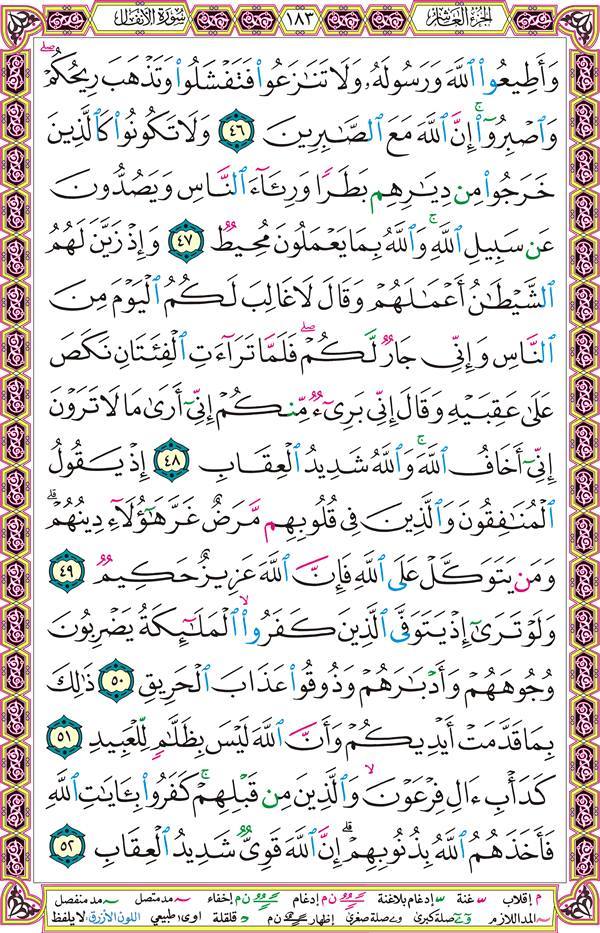 الجزء العاشر ١٨٣ سورة الأنفال
وَأَطِيعُوا۟ ٱللَّهَ وَرَسُولَهُۥ وَلَا تَنَـٰزَعُوا۟ فَتَفْشَلُوا۟ وَتَذْهَبَ رِيحُكُمْ ۖ
وَٱصْبِرُوٓا۟ ۚ إِنَّ ٱللَّهَ مَعَ ٱلصَّـٰبِرِينَ ٤٦ وَلَا تَكُونُوا۟ كَٱلَّذِينَ
خَرَجُوا۟ مِن دِيَـٰرِهِم بَطَرًۭا وَرِئَآءَ ٱلنَّاسِ وَيَصُدُّونَ
عَن سَبِيلِ ٱللَّهِ ۚ وَٱللَّهُ بِمَا يَعْمَلُونَ مُحِيطٌۭ ٤٧ وَإِذْ زَيَّنَ لَهُمُ
ٱلشَّيْطَـٰنُ أَعْمَـٰلَهُمْ وَقَالَ لَا غَالِبَ لَكُمُ ٱلْيَوْمَ مِنَ
ٱلنَّاسِ وَإِنِّى جَارٌۭ لَّكُمْ ۖ فَلَمَّا تَرَآءَتِ ٱلْفِئَتَانِ نَكَصَ
عَلَىٰ عَقِبَيْهِ وَقَالَ إِنِّى بَرِىٓءٌۭ مِّنكُمْ إِنِّىٓ أَرَىٰ مَا لَا تَرَوْنَ
إِنِّىٓ أَخَافُ ٱللَّهَ ۚ وَٱللَّهُ شَدِيدُ ٱلْعِقَابِ ٤٨ إِذْ يَقُولُ
ٱلْمُنَـٰفِقُونَ وَٱلَّذِينَ فِى قُلُوبِهِم مَّرَضٌ غَرَّ هَـٰٓؤُلَآءِ دِينُهُمْ ۗ
وَمَن يَتَوَكَّلْ عَلَى ٱللَّهِ فَإِنَّ ٱللَّهَ عَزِيزٌ حَكِيمٌۭ ٤٩
وَلَوْ تَرَىٰٓ إِذْ يَتَوَفَّى ٱلَّذِينَ كَفَرُوا۟ ۙ ٱلْمَلَـٰٓئِكَةُ يَضْرِبُونَ
وُجُوهَهُمْ وَأَدْبَـٰرَهُمْ وَذُوقُوا۟ عَذَابَ ٱلْحَرِيقِ ٥٠ ذَٰلِكَ
بِمَا قَدَّمَتْ أَيْدِيكُمْ وَأَنَّ ٱللَّهَ لَيْسَ بِظَلَّـٰمٍۢ لِّلْعَبِيدِ ٥١
كَدَأْبِ ءَالِ فِرْعَوْنَ ۙ وَٱلَّذِينَ مِن قَبْلِهِمْ ۚ كَفَرُوا۟ بِـَٔايَـٰتِ ٱللَّهِ
فَأَخَذَهُمُ ٱللَّهُ بِذُنُوبِهِمْ ۗ إِنَّ ٱللَّهَ قَوِىٌّۭ شَدِيدُ ٱلْعِقَابِ ٥٢
م إقلاب غنة إدغام بلاغنة ن م إدغام ن م إخفاء مد متصل مد منفصل
المد اللازم صلة كبرى صلة صغرى إظهار ن م قلقلة اوى طبيعي اللون الأزرق: لا يلفظ